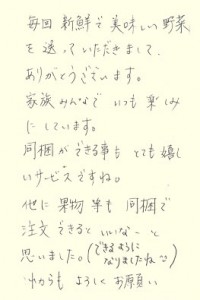 毎回 新鮮で美味しい野菜
を送っていただきまして、
ありがとうございます。
家族みんなで いつも楽しみ
にしています。
同梱ができる事も とても嬉し
いサービスですね。
他に果物等も同梱で
注文できるといいなーと
思いました。(できるように
なりましたね
これからも よろしくお願い